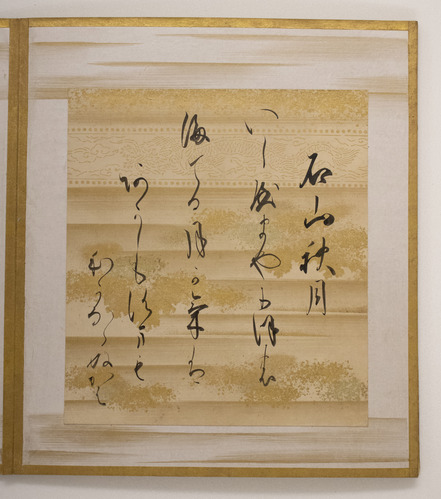 石山秋月
いしやまや尓保の
海てる月可気は
あかしも須まも
ほかならぬかな